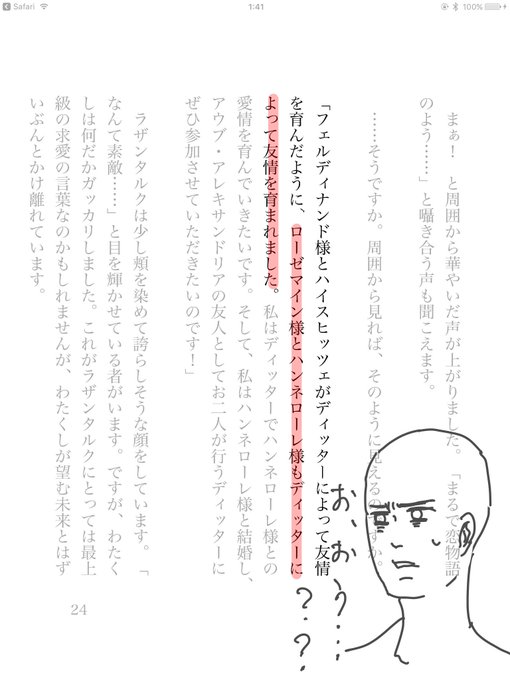 Safari
1:41
100%
まぁ！　と周囲から華やいだ声が上がりました。「まるで恋物語
のよう……」と囁き合う声も聞こえます。
……そうですか。周囲から見れば、そのように見えるのですか。
「フェルディナンド様とハイスヒッツェがディッターによって友情
を育んだように、ローゼマイン様とハンネローレ様もディッターに
よって友情を育まれました。私はディッターでハンネローレ様との
愛情を育んでいきたいです。そして、私はハンネローレ様と結婚し、
アウブ・アレキサンドリアの友人としてお二人が行うディッターに
ぜひ参加させていただきたいのです！」
ラザンタルクは少し頬を染めて誇らしそうな顔をしています。「
なんて素敵……」と目を輝かせている者がいます。ですが、わたく
しは何だかガッカリしました。これがラザンタルクにとっては最上
級の求愛の言葉なのかもしれませんが、わたくしが望む未来とはず
いぶんとかけ離れています。
24
お、おう…??